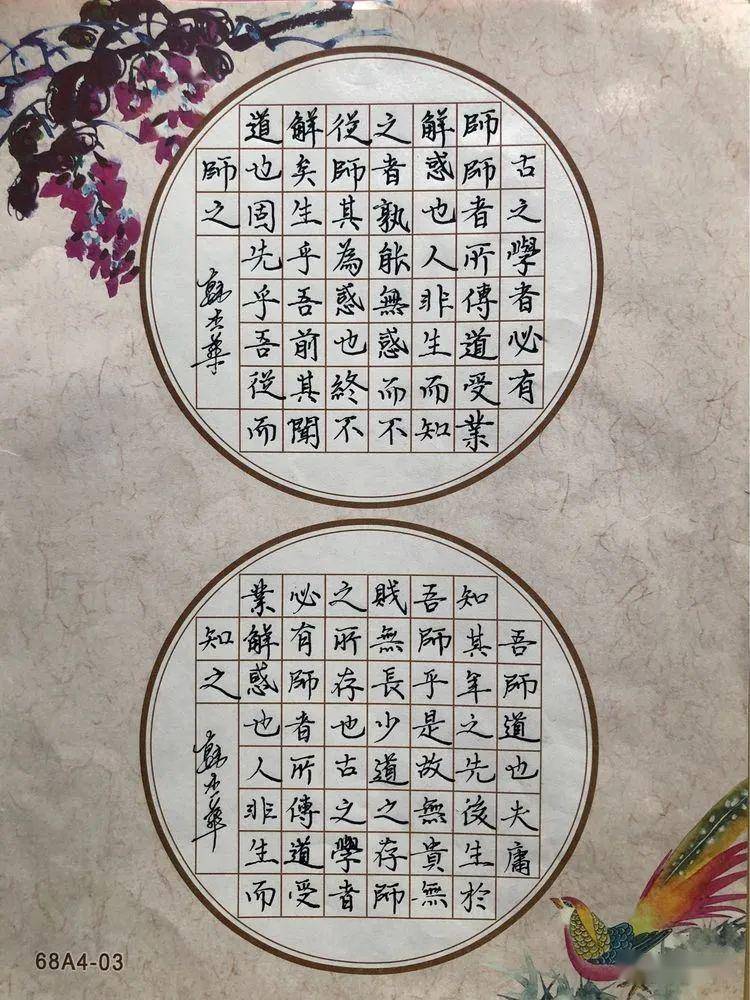 古之學者必有
師師者所傳道受業
解惑也人非生而知
之者孰能無惑而不
從師其為惑也終不
解矣生乎吾前其聞
道也固先乎吾從而
師之
吾師道也夫庸
知其年之先後生於
吾師乎是故無貴無
賤無長少道之存師
之所存也古之學者
必有師者所傳道受
業解惑也人非生而
知之
68A4-03